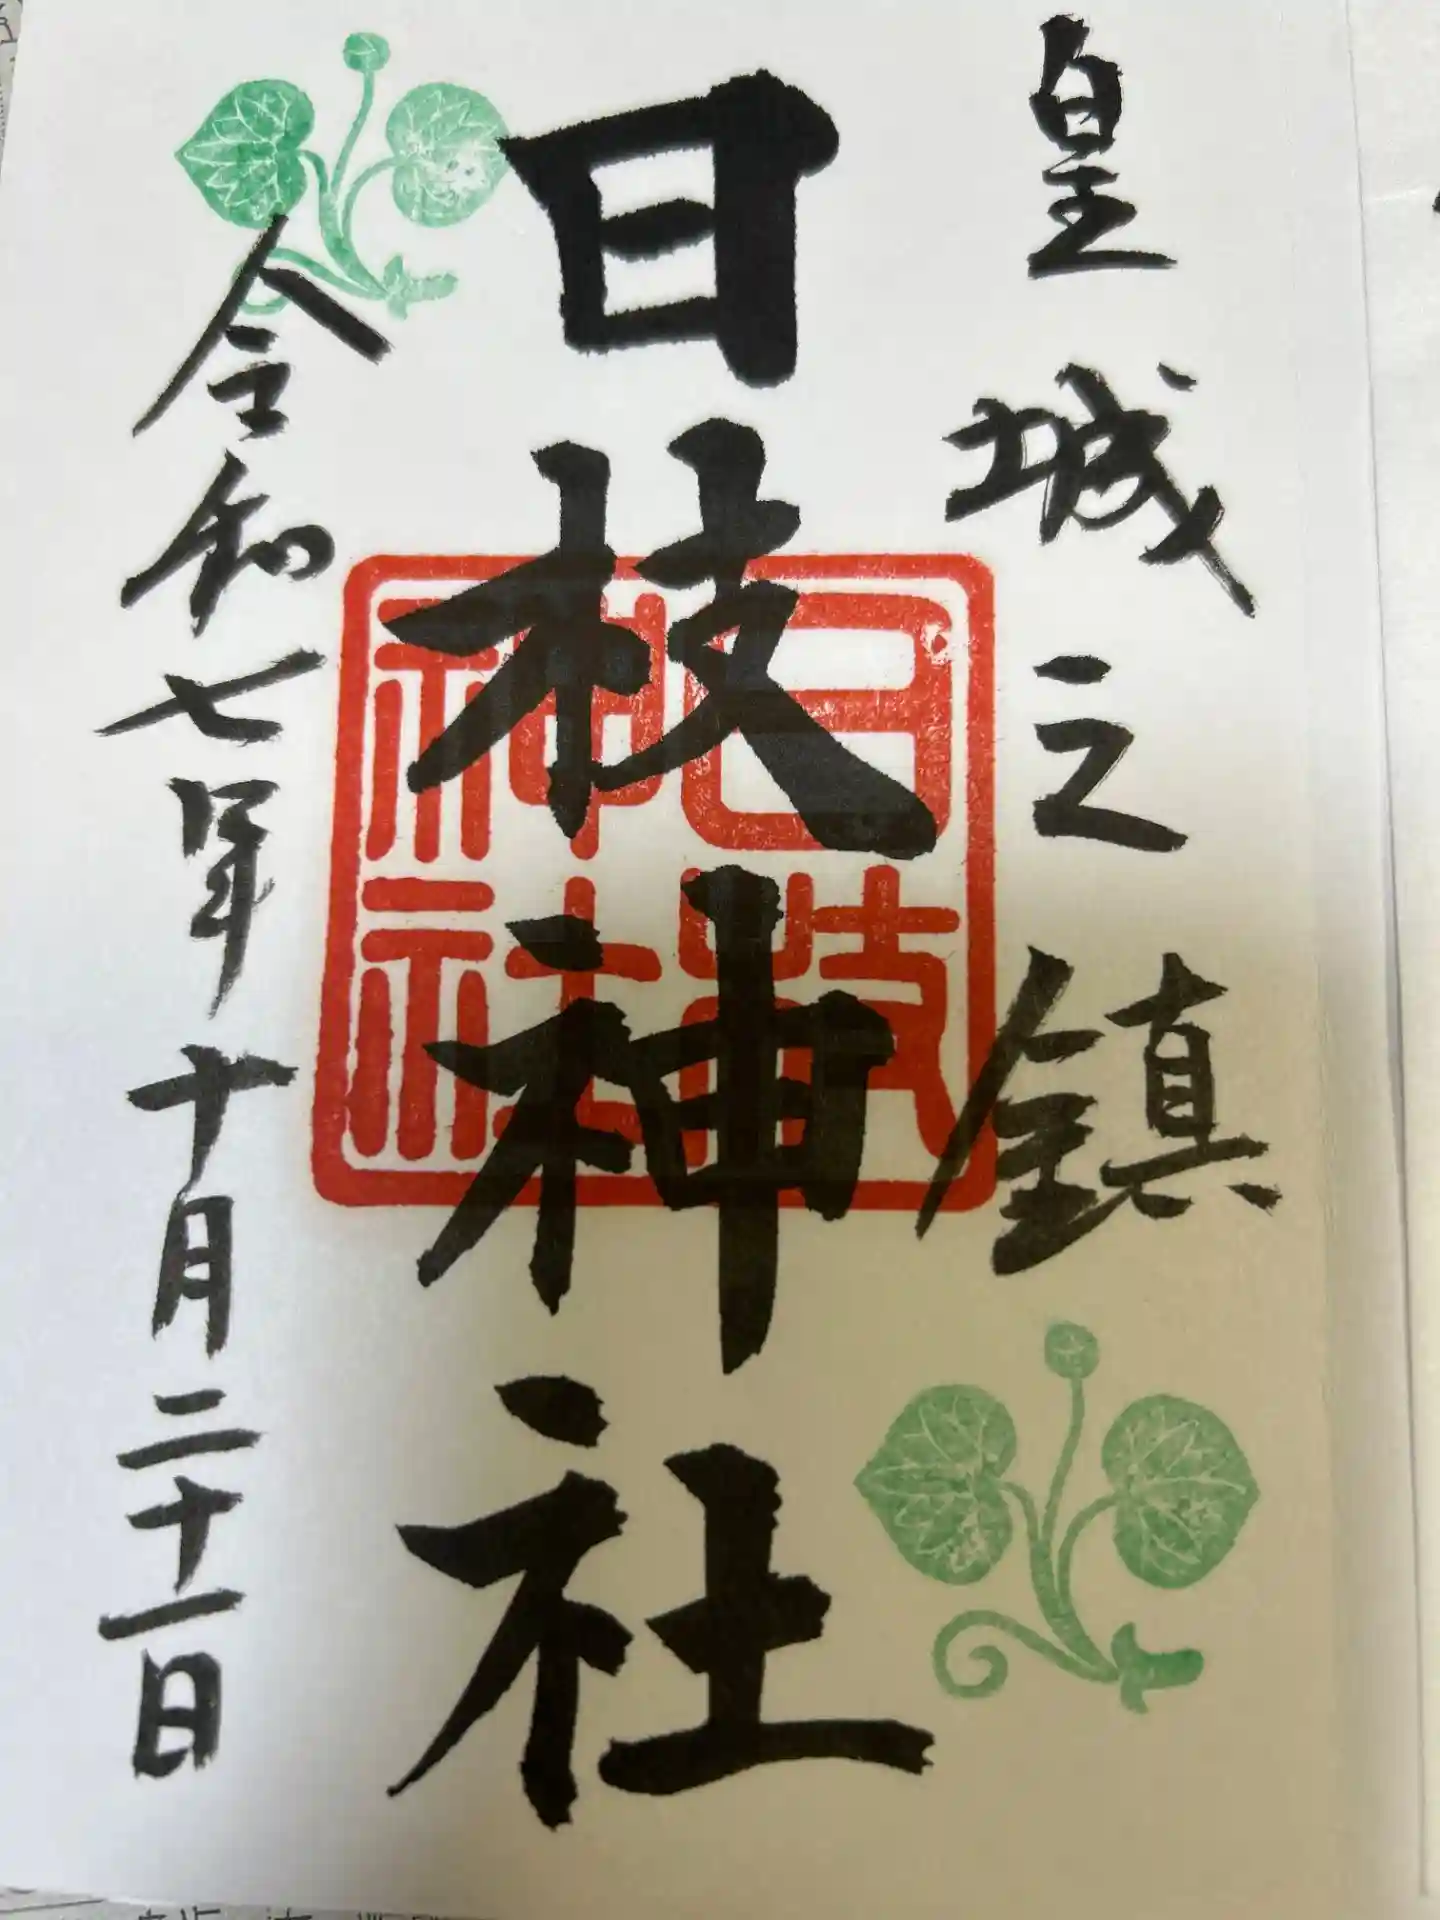 皇城之鎮
日枝神社
日枝
神社
令和七年十月二十一日